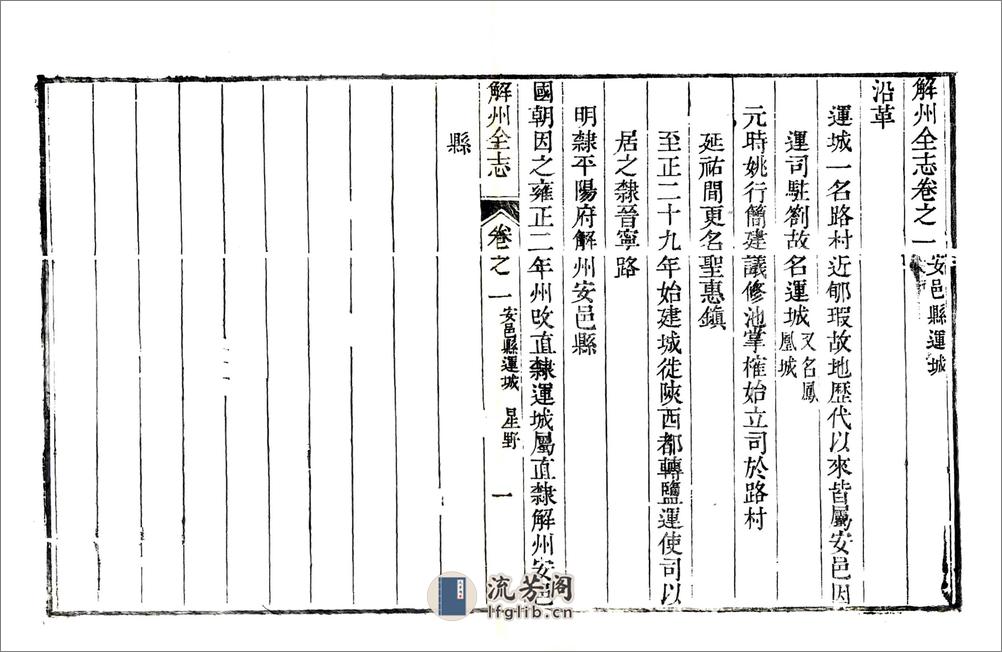 解州全志卷之一 安邑縣運城
沿革
運城一名路村近郇瑕故地歷代以來皆屬安邑因
運司駐劄故名運城 又名鳳
凰城
元時姚行簡建議修池掌榷始立司於路村
延祐間更名聖惠鎮
至正二十九年始建城徙陝西都轉鹽運使司以
居之隸晉寧路
明隸平陽府解州安邑縣
國朝因之雍正二年州改直隸運城屬直隸解州安邑
解州全志 卷之一 安邑縣運城 星野 一
縣
流芳阁
lfglib.cn